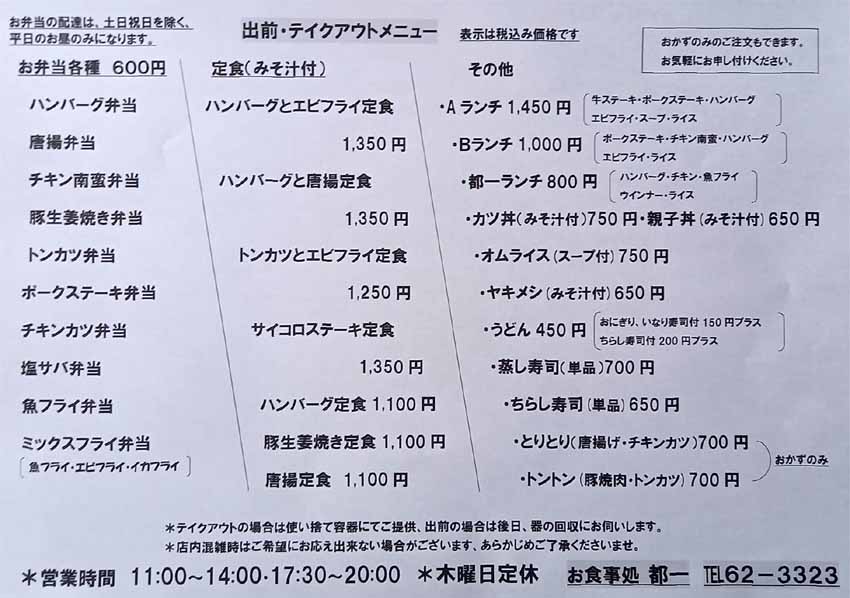 お弁当の配達は、土日祝日を除く、
平日のお昼のみになります。
出前・テイクアウトメニュー
表示は税込み価格です
おかずのみのご注文もできます。
お気軽にお申し付けください。
お弁当各種 600円
ハンバーグ弁当
唐揚弁当
チキン南蛮弁当
豚生姜焼き弁当
トンカツ弁当
ポークステーキ弁当
チキンカツ弁当
塩サバ弁当
魚フライ弁当
ミックスフライ弁当
魚フライ・エビフライ・イカフライ
定食(みそ汁付)
ハンバーグとエビフライ定食
1,350 円
ハンバーグと唐揚定食
1,350 円
トンカツとエビフライ定食
1,250 円
サイコロステーキ定食
1,350 円
ハンバーグ定食 1,100 円
豚生姜焼き定食 1,100 円
唐揚定食 1,100 円
その他
・Aランチ 1,450 円
牛ステーキ・ポークステーキ・ハンバーグ
エビフライ・スープ・ライス
・Bランチ 1,000 円
ポークステーキ・チキン南蛮・ハンバーグ
エビフライ・ライス
・都一ランチ 800 円
ハンバーグ・チキン・魚フライ
ウインナー・ライス
・カツ丼(みそ汁付)750 円・親子丼(みそ汁付)650 円
・オムライス(スープ付)750 円
・ヤキメシ(みそ汁付)650 円
・うどん 450 円
おにぎり、いなり寿司付 150 円プラス
ちらし寿司付 200 円プラス
・蒸し寿司(単品)700 円
・ちらし寿司(単品)650 円
・とりとり(唐揚げ・チキンカツ)700 円
・トントン(豚焼肉・トンカツ)700 円
おかずのみ
*テイクアウトの場合は使い捨て容器にてご提供、出前の場合は後日、器の回収にお伺いします。
*店内混雑時はご希望にお応え出来ない場合がございます、あらかじめご了承くださいませ。
*営業時間 11:00～14:00・17:30～20:00 *木曜日定休 お食事処 都一 ℡62－3323